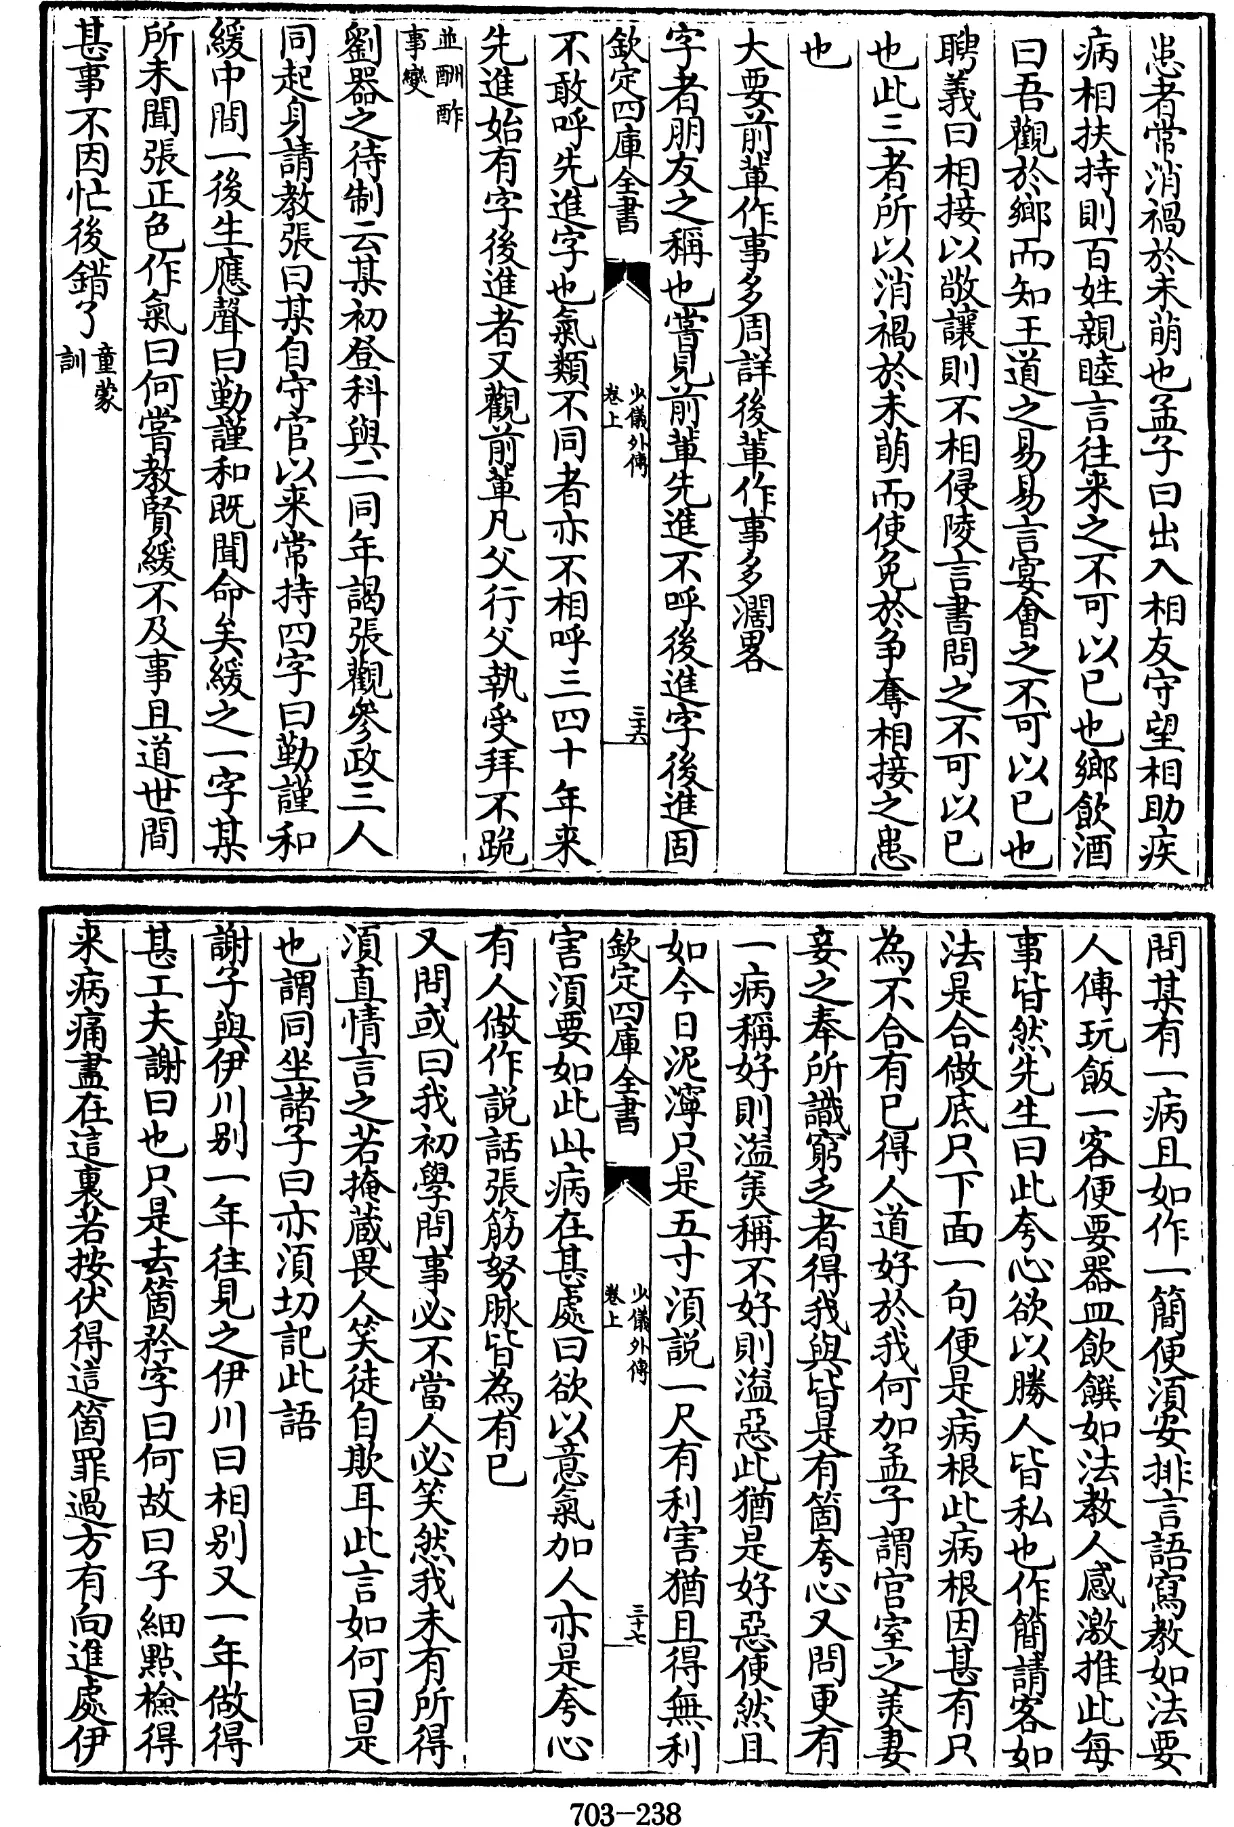 患者常消禍於未萌也孟子曰出入相友守望相助疾
病相扶持則百姓親睦言往来之不可以已也鄉飲酒
曰吾觀於鄉而知王道之易易言宴會之不可以已也
聘義曰相接以敬讓則不相侵陵言書問之不可以已
也此三者所以消禍於未萌而使免於争奪相接之患
也
大要前輩作事多周詳後輩作事多濶畧
字者朋友之稱也嘗見前輩先進不呼後進字後進固
欽定四庫全書
少儀外傳
卷上
三十六
不敢呼先進字也氣類不同者亦不相呼三四十年来
先進始有字後進者又觀前輩凡父行父執受拜不跪
並酬酢
事變
劉器之待制云某初登科與二同年謁張觀參政三人
同起身請教張曰某自守官以来常持四字曰勤謹和
緩中間一後生應聲曰勤謹和既聞命矣緩之一字某
所未聞張正色作氣曰何嘗教賢緩不及事且道世間
甚事不因忙後錯了
童蒙
訓
問某有一病且如作一簡便湏安排言語寫教如法要
人傳玩飯一客便要器皿飲饌如法教人感激推此每
事皆然先生曰此夸心欲以勝人皆私也作簡請客如
法是合做底只下面一句便是病根此病根因甚有只
為不合有已得人道好於我何加孟子謂宫室之美妻
妾之奉所識窮乏者得我與皆是有箇夸心又問更有
一病稱好則溢美稱不好則溢惡此猶是好惡使然且
如今日泥濘只是五寸湏説一尺有利害猶且得無利
欽定四庫全書
少儀外傳
卷上
三十七
害湏要如此此病在甚處曰欲以意氣加人亦是夸心
有人做作説話張筋努脉皆為有已
又問或曰我初學問事必不當人必笑然我未有所得
湏直情言之若掩蔵畏人笑徒自欺耳此言如何曰是
也謂同坐諸子曰亦湏切記此語
謝子與伊川别一年往見之伊川曰相别又一年做得
甚工夫謝曰也只是去箇矜字曰何故曰子細㸃檢得
来病痛盡在這裏若按伏得這箇罪過方有向進處伊
703-238